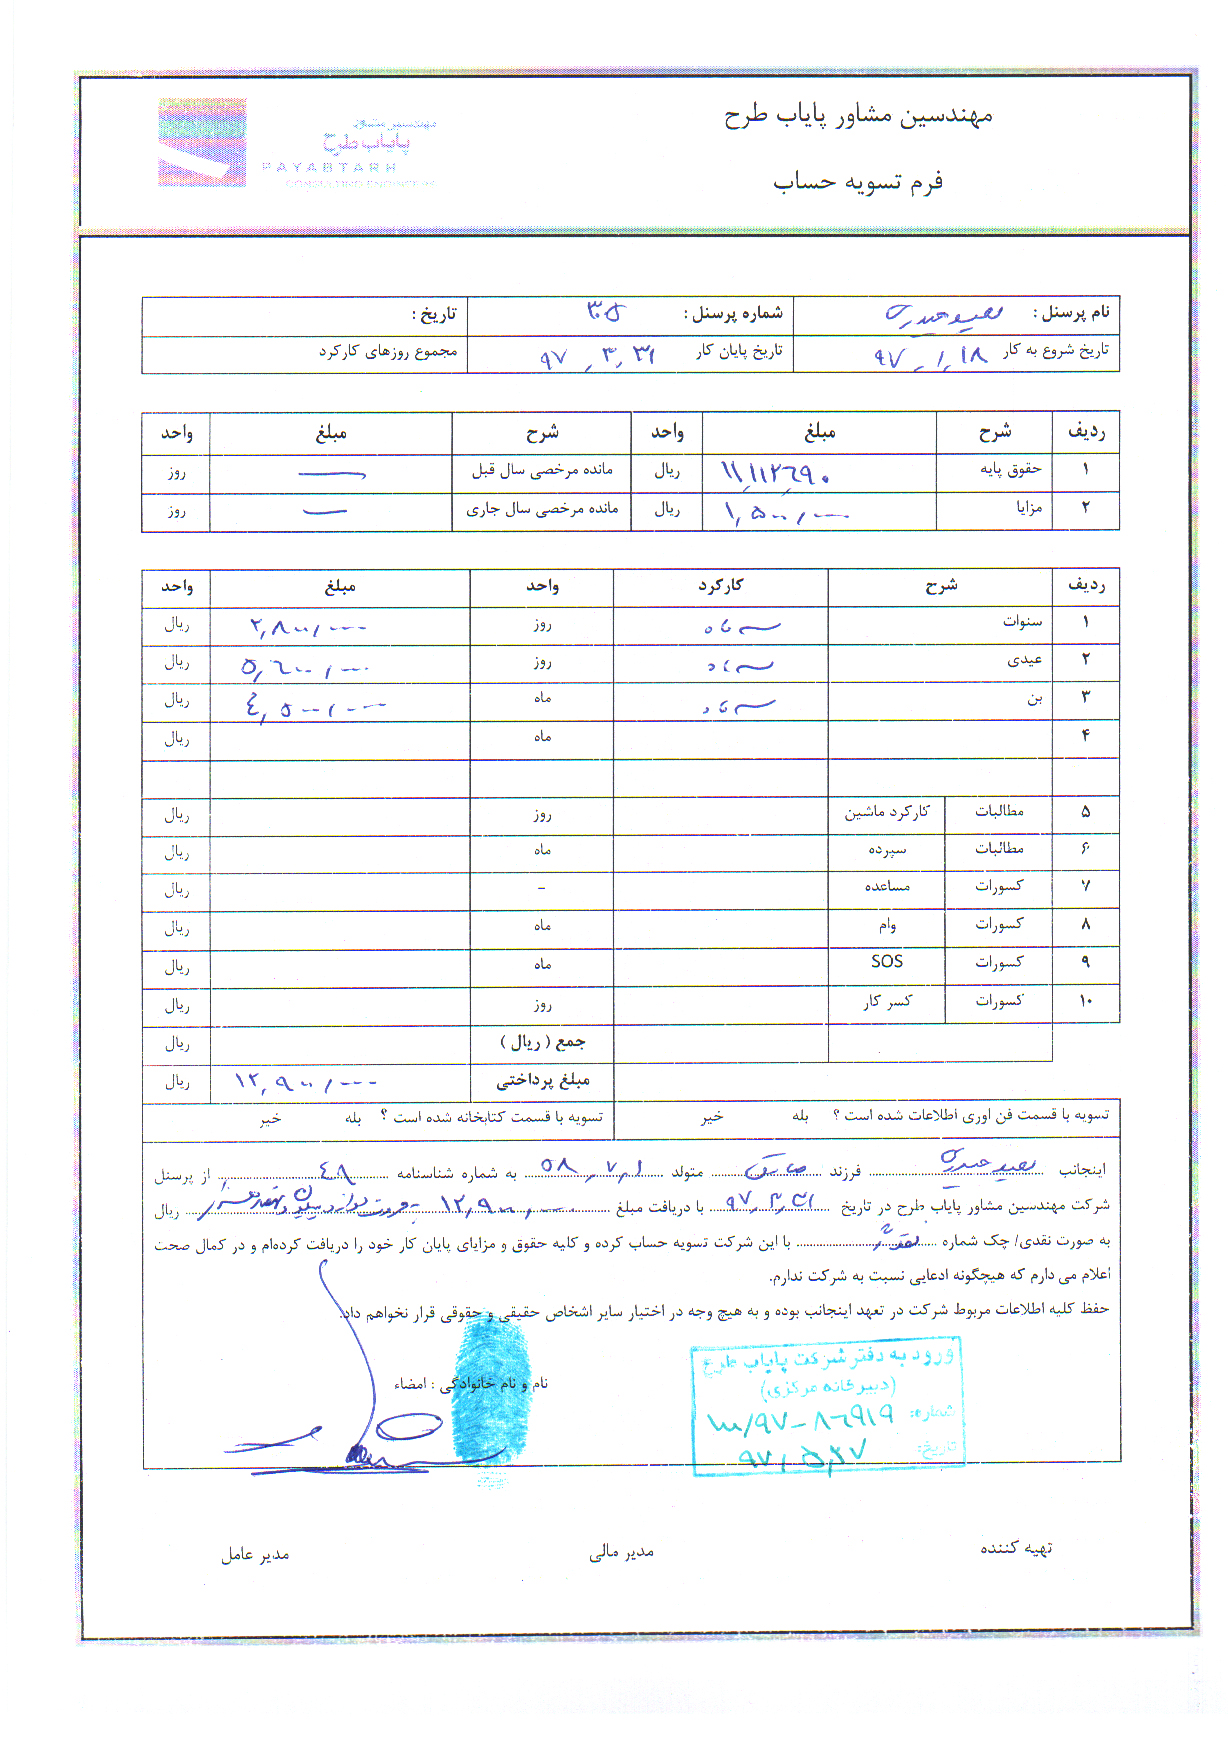 مهندسین مشاور پایاب طرح
فرم تسویه حساب
مهندسین مشاور
پایاب طرح
PAYABTARH
CONSULTING ENGINEERS
نام پرسنل : شماره پرسنل : ۳۰۵ تاریخ :
تاریخ شروع به کار ۹۷،۱،۱۸ تاریخ پایان کار ۹۷،۳،۳۱ مجموع روزهای کارکرد
ردیف شرح مبلغ واحد شرح مبلغ واحد
۱ حقوق پایه ۱۱,۱۱۲,۶۹۰ ریال مانده مرخصی سال قبل — روز
۲ مزایا ۱,۵۰۰,۰۰۰ ریال مانده مرخصی سال جاری — روز
ردیف شرح کارکرد واحد مبلغ واحد
۱ سنوات روز ۲,۸۰۰,۰۰۰ ریال
۲ عیدی روز ۵,۶۰۰,۰۰۰ ریال
۳ بن ماه ۴,۵۰۰,۰۰۰ ریال
۴ ماه ریال
۵ مطالبات کارکرد ماشین روز ریال
۶ مطالبات سپرده ماه ریال
۷ کسورات مساعده - ریال
۸ کسورات وام ماه ریال
۹ کسورات SOS ماه ریال
۱۰ کسورات کسر کار روز ریال
جمع ( ریال ) ریال
مبلغ پرداختی ۱۲,۹۰۰,۰۰۰ ریال
تسویه با قسمت فن اوری اطلاعات شده است ؟ بله خیر تسویه با قسمت کتابخانه شده است ؟ بله خیر
اینجانب فرزند متولد ۵۸،۷،۱ به شماره شناسنامه ۴۸ از پرسنل
شرکت مهندسین مشاور پایاب طرح در تاریخ ۹۷،۳،۳۱ با دریافت مبلغ ۱۲,۹۰۰,۰۰۰ ریال
به صورت نقدی/ چک شماره با این شرکت تسویه حساب کرده و کلیه حقوق و مزایای پایان کار خود را دریافت کرده‌ام و در کمال صحت
اعلام می دارم که هیچگونه ادعایی نسبت به شرکت ندارم.
حفظ کلیه اطلاعات مربوط شرکت در تعهد اینجانب بوده و به هیچ وجه در اختیار سایر اشخاص حقیقی و حقوقی قرار نخواهم داد.
نام و نام خانوادگی : امضاء
ورود به دفتر شرکت پایاب طرح
(دبیرخانه مرکزی)
شماره: ۱۰۰/۹۷-۸۶۹۱۹
تاریخ: ۹۷،۵،۲۷
تهیه کننده مدیر مالی مدیر عامل